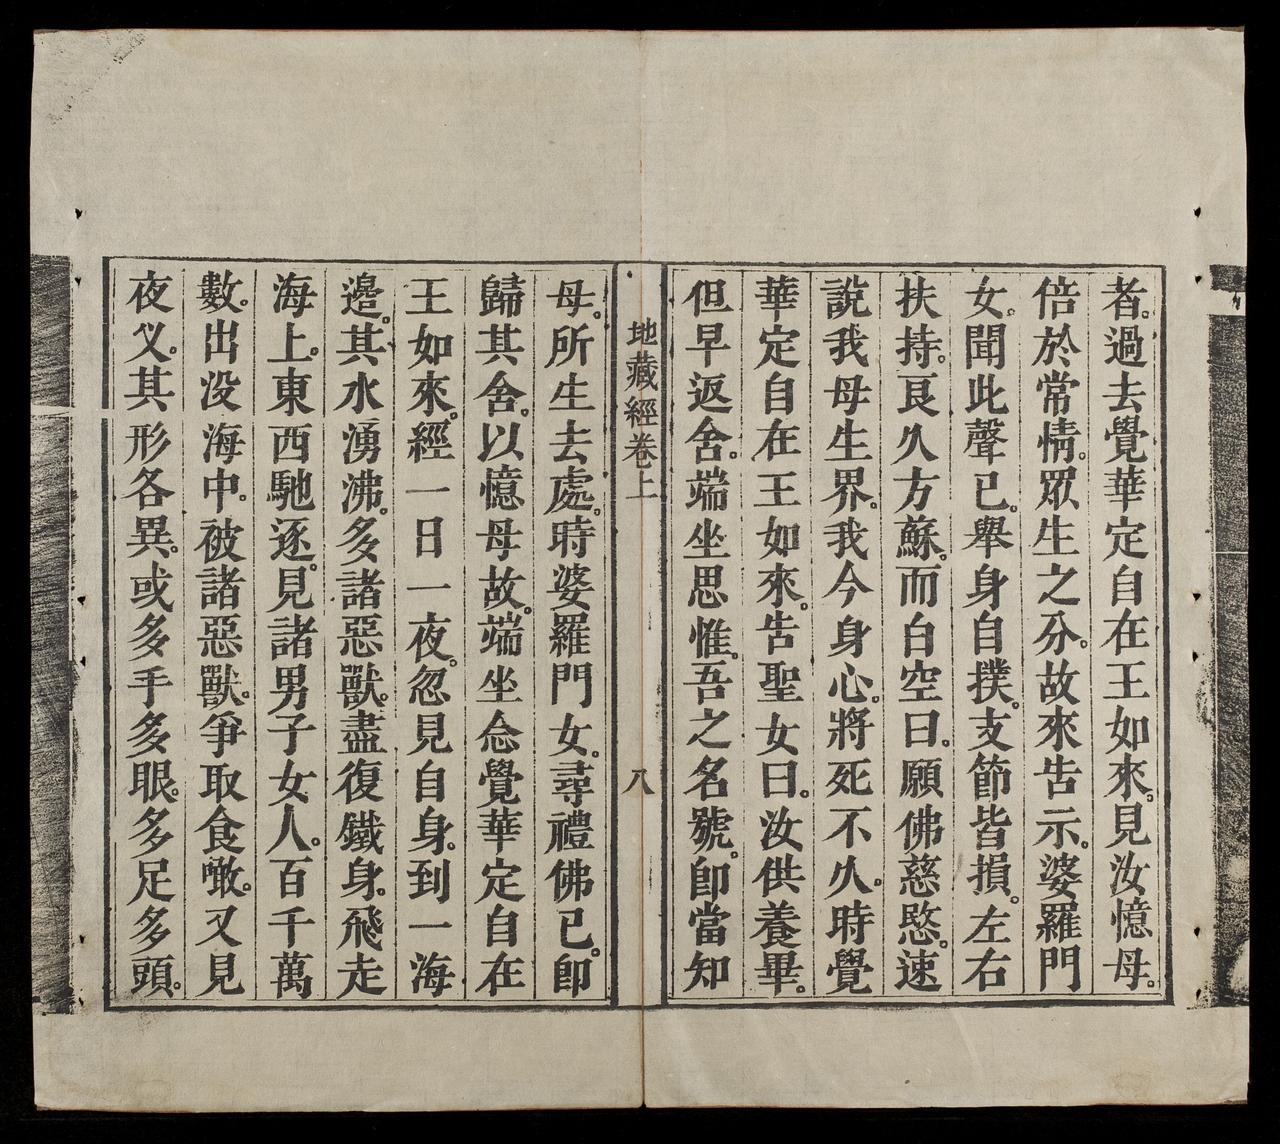 者。過去覺華定自在王如來。見汝憶母。
倍於常情。眾生之分。故來告示。婆羅門
女。聞此聲已。舉身自撲。支節皆損。左右
扶持。良久方蘇。而白空曰。願佛慈愍。速
說我母生界。我今身心。將死不久。時覺
華定自在王如來。告聖女曰。汝供養畢。
但早返舍。端坐思惟。吾之名號。即當知
地藏經卷上 八
母。所生去處。時婆羅門女。尋禮佛已。即
歸其舍。以憶母故。端坐念覺華定自在
王如來。經一日一夜。忽見自身。到一海
邊。其水湧沸。多諸惡獸。盡復鐵身。飛走
海上。東西馳逐。見諸男子女人。百千萬
數。出没海中。被諸惡獸。爭取食噉。又見
夜叉。其形各異。或多手多眼。多足多頭。